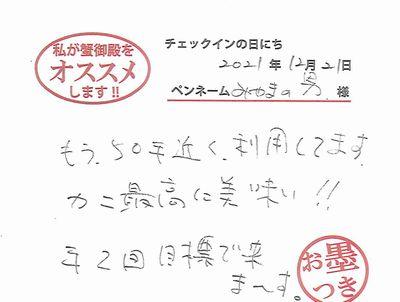 私が蟹御殿を
オススメ
します!!
チェックインの日にち
2021年12月21日
ペンネーム みやまの男 様
もう、50年近く、利用してます。
カニ最高に美味い!!
年2回目標で来
ま〜す。
お墨
つき